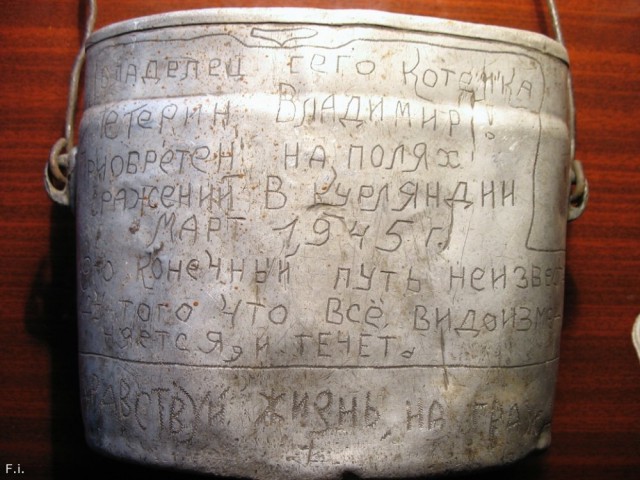 владелец сего котелка
Петерин Владимир Г.
приобретен на полях
сражений в Курляндии
март 1945 г.
его конечный путь неизвес
того что всё видоизме
няется, и течет.
Здравствуй жизнь, на
F.i.